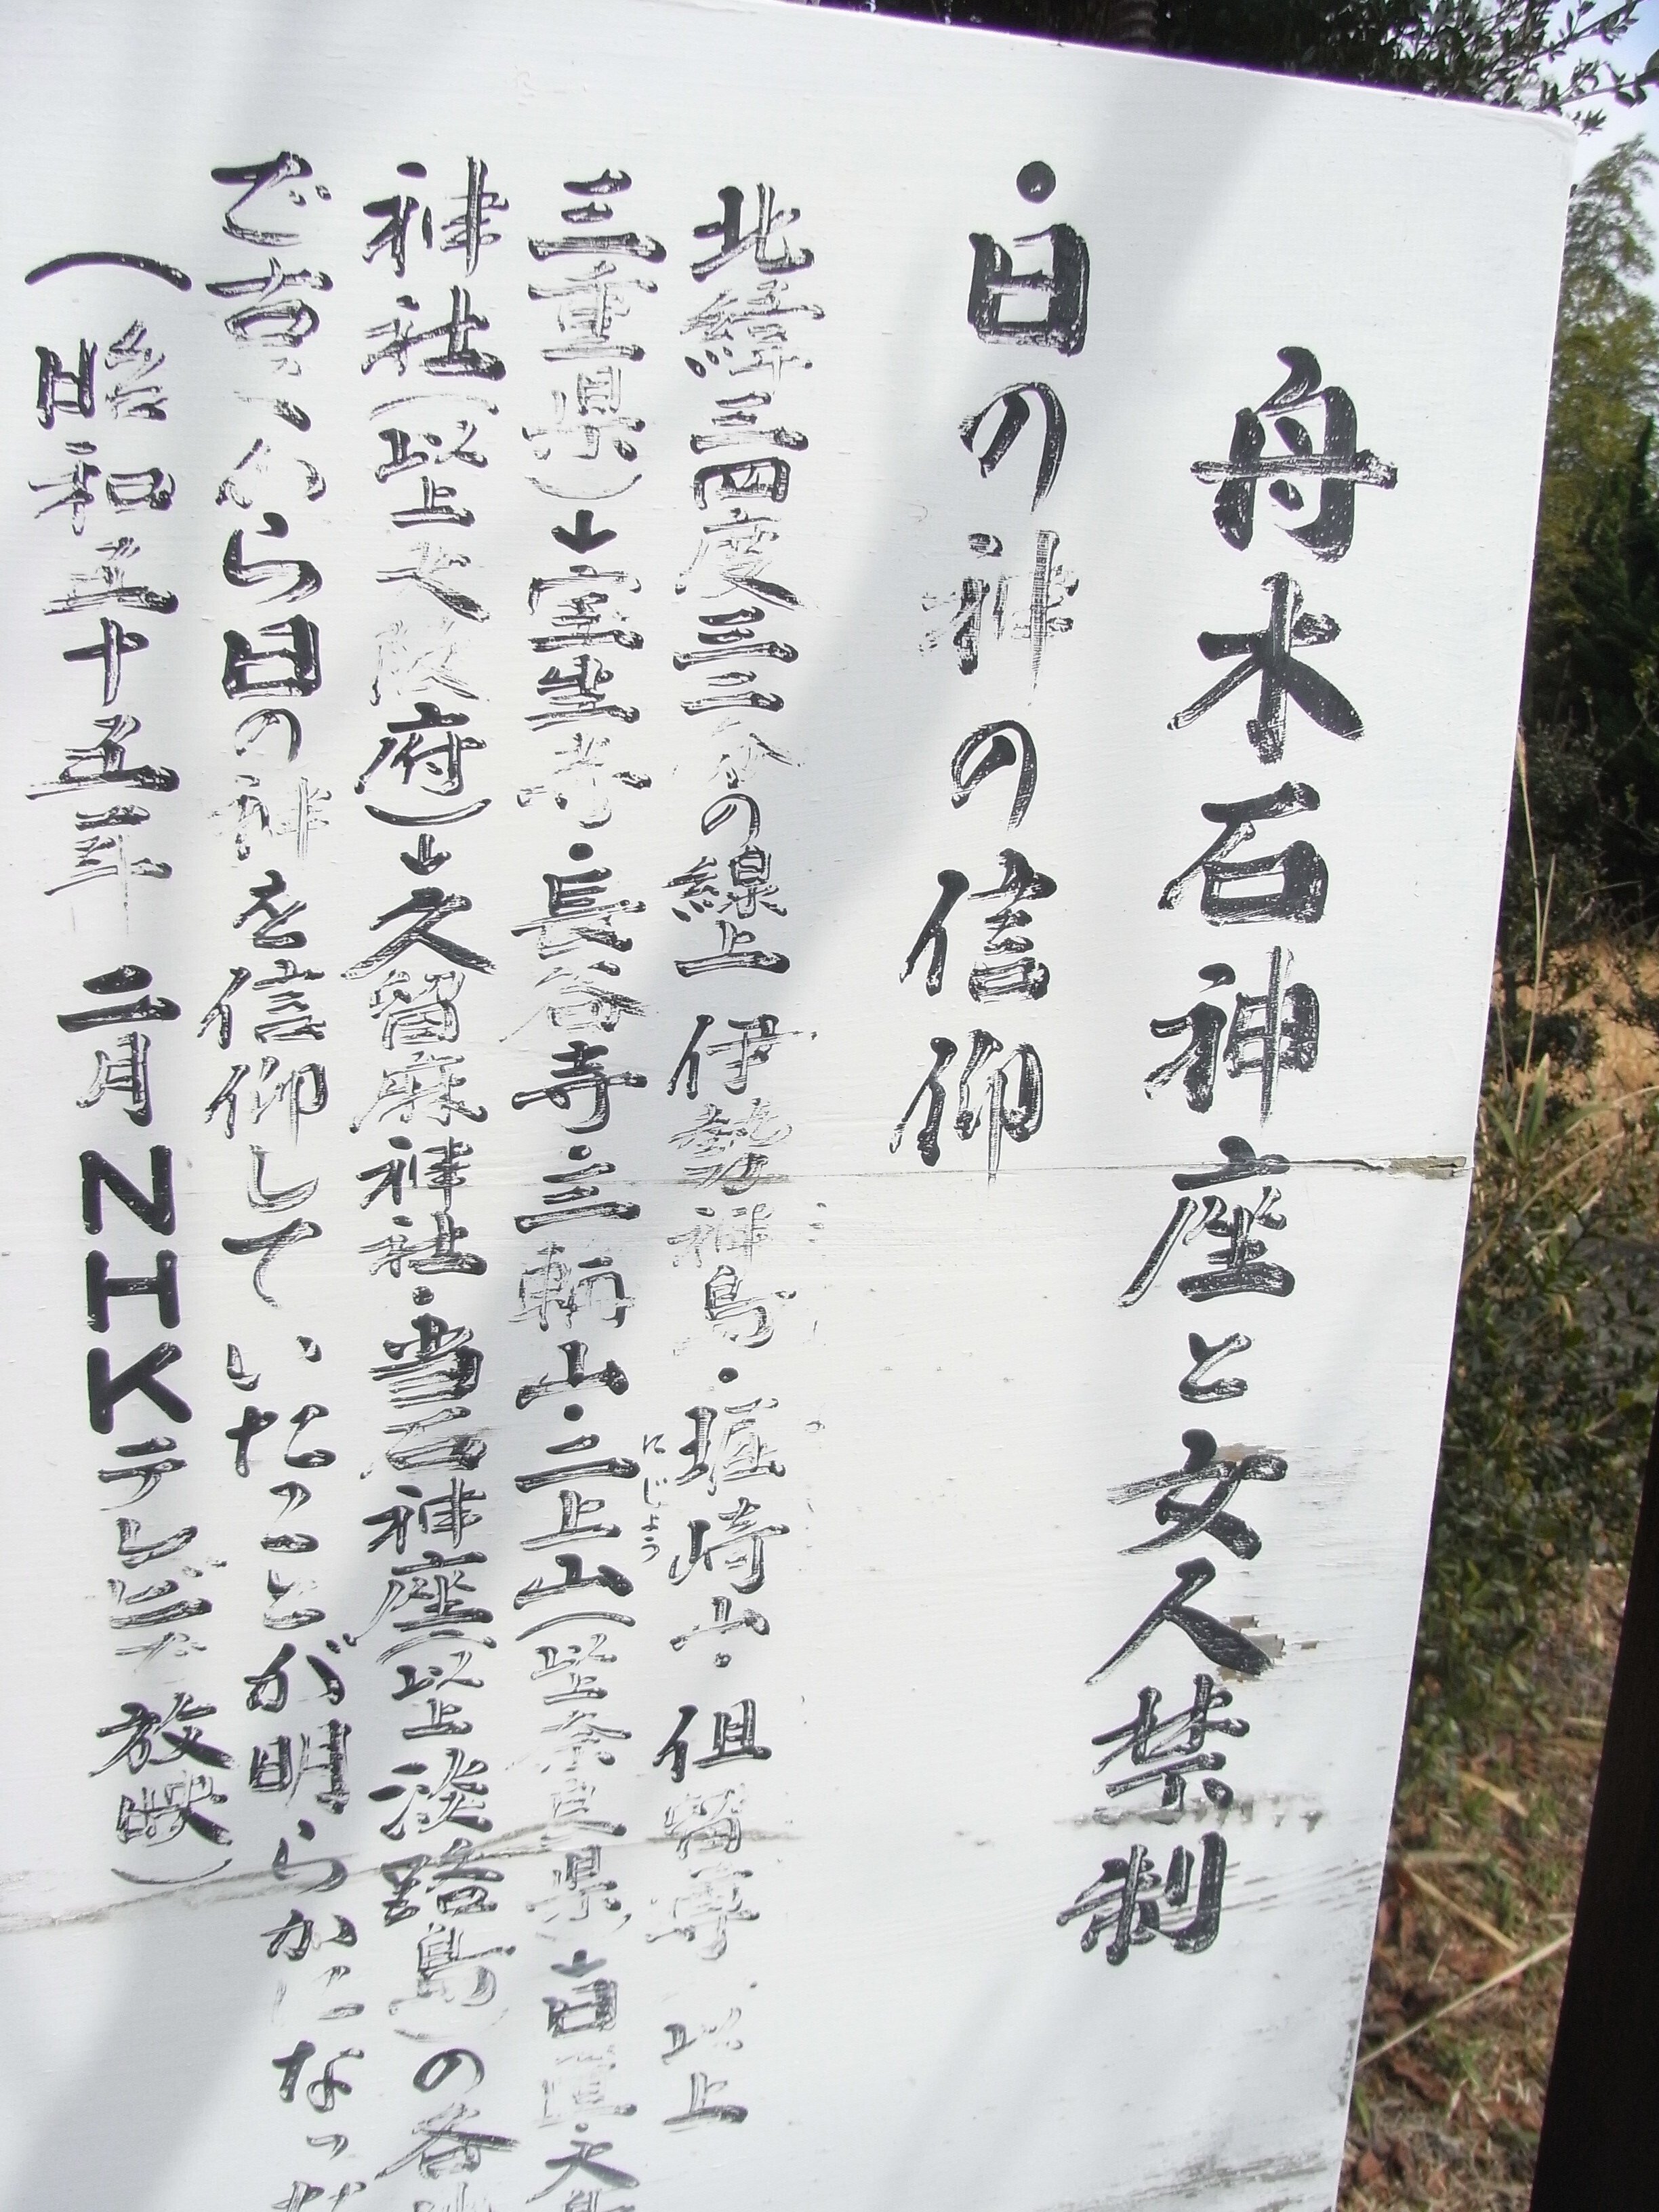 舟木石神座と女人禁制
・日の神の信仰
北緯三四度三二分の線上 伊勢神島・堀崎山・但留尊 以上
三重県)↓室生寺・長谷寺・三輪山・二上山(以上奈良県)
にじょう
神社(以上大阪府)↓久留麻神社・当石神座(以上淡路島)の各
で古くから日の神を信仰していたことが明らかになっ
(昭和五十五年 二月 NHKテレビ 放映)